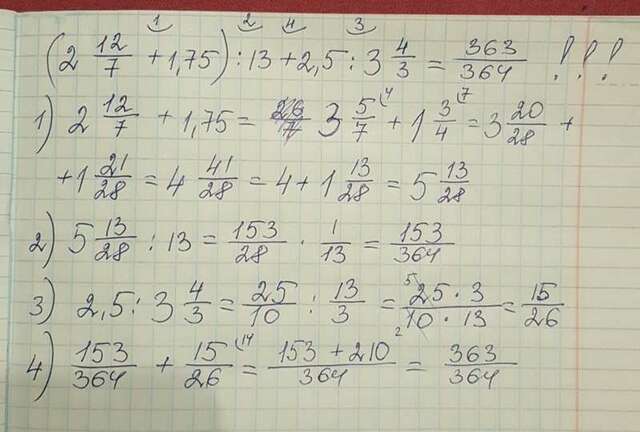 1 2 4 3
(2 12/7 + 1,75) : 13 + 2,5 : 3 4/3 = 363/364 !!!
1) 2 12/7 + 1,75 = 3 5/7 (4 + 1 3/4 (7 = 3 20/28 +
+ 1 21/28 = 4 41/28 = 4 + 1 13/28 = 5 13/28
2) 5 13/28 : 13 = 153/28 · 1/13 = 153/364
3) 2,5 : 3 4/3 = 25/10 : 13/3 = 5 25 · 3 / 2 10 · 13 = 15/26
4) 153/364 + 15/26 (14 = 153 + 210 / 364 = 363/364